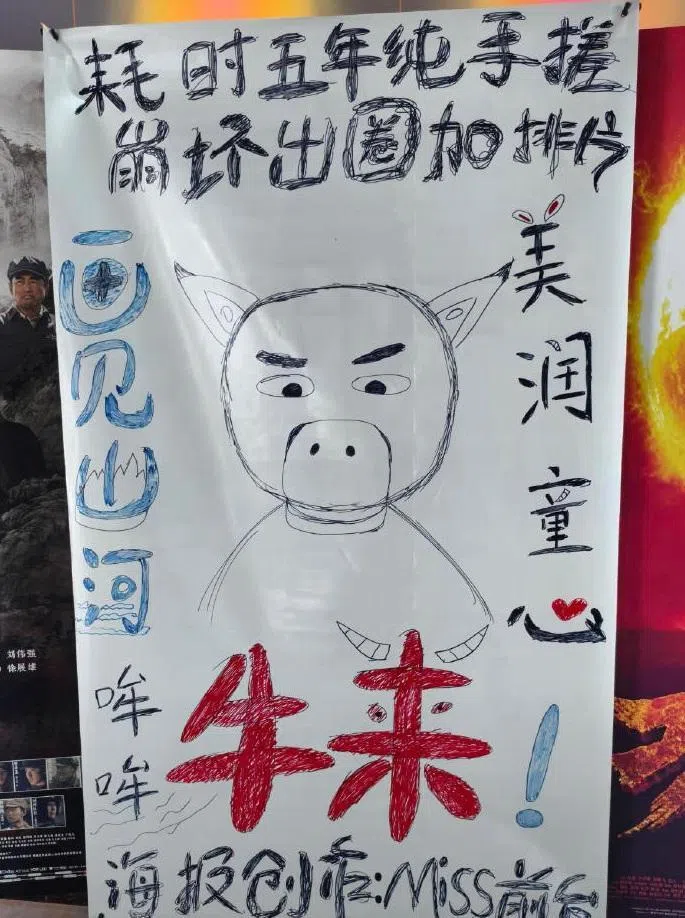 耗时五年纯手搓
崩坏出圈加排片
画见山河
美润童心
哞哞
牛来！
海报创意:Miss前台
刘伟强
徐展雄